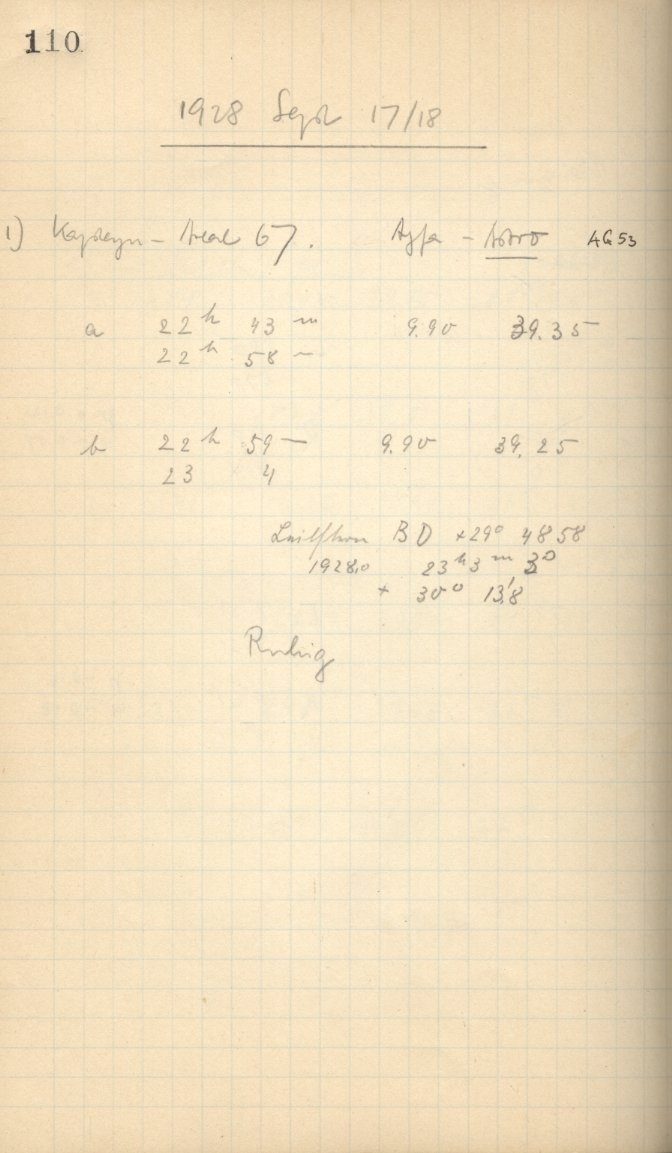 110
1928 Sept 17/18
1) Kapteyn - Areal 67. Agfa - Astro AG 53
a 22h 43m 9.90 39.35
22h 58m
b 22h 59m 9.90 39.25
23 4
Leitstern BD +29° 4858
1928.0 23h 3m 3s
+ 30° 13,8'
Ruhig